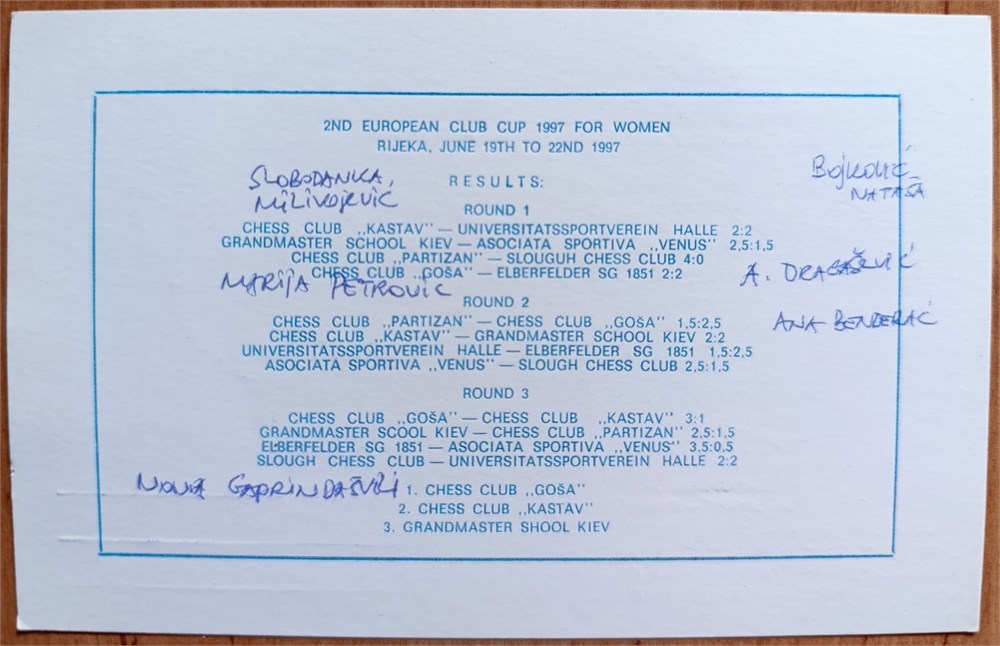 2ND EUROPEAN CLUB CUP 1997 FOR WOMEN
RIJEKA, JUNE 19TH TO 22ND 1997
SLOBODANKA,
MILIVOJEVIC
RESULTS:
BOJKOVIĆ
NATAŠA
ROUND 1
CHESS CLUB ,,KASTAV'' — UNIVERSITATSSPORTVEREIN HALLE 2:2
GRANDMASTER SCHOOL KIEV — ASOCIATA SPORTIVA ,,VENUS'' 2,5:1,5
CHESS CLUB ,,PARTIZAN'' — SLOUGUH CHESS CLUB 4:0
CHESS CLUB ,,GOŠA'' — ELBERFELDER SG 1851 2:2
MARIJA PETROVIC
A. DRAGAŠEVIĆ
ROUND 2
CHESS CLUB ,,PARTIZAN'' — CHESS CLUB ,,GOŠA'' 1,5:2,5
ANA BENDERAĆ
CHESS CLUB ,,KASTAV'' — GRANDMASTER SCHOOL KIEV 2:2
UNIVERSITATSSPORTVEREIN HALLE — ELBERFELDER SG 1851 1,5:2,5
ASOCIATA SPORTIVA ,,VENUS'' — SLOUGH CHESS CLUB 2,5:1,5
ROUND 3
CHESS CLUB ,,GOŠA'' — CHESS CLUB ,,KASTAV'' 3:1
GRANDMASTER SCOOL KIEV — CHESS CLUB ,,PARTIZAN'' 2,5:1,5
ELBERFELDER SG 1851 — ASOCIATA SPORTIVA ,,VENUS'' 3,5:0,5
SLOUGH CHESS CLUB — UNIVERSITATSSPORTVEREIN HALLE 2:2
NONA GAPRINDAŠVILI
1. CHESS CLUB ,,GOŠA''
2. CHESS CLUB ,,KASTAV''
3. GRANDMASTER SHOOL KIEV